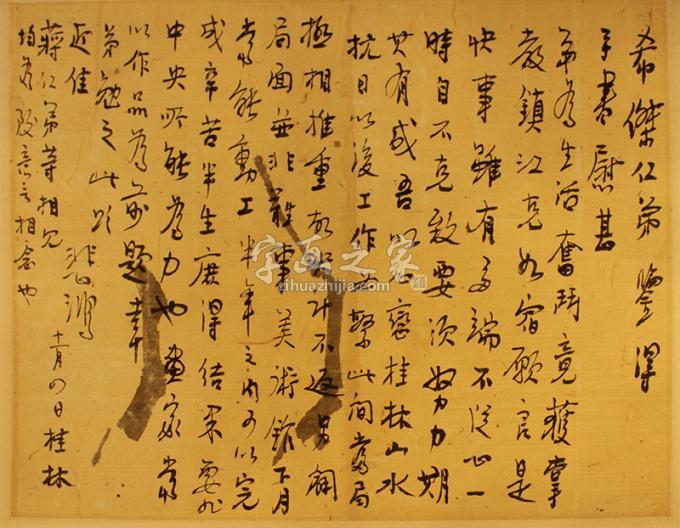 希傑仁弟鑒得
手書慰甚
弟為生活奮鬥竟獲掌
教鎮江克如宿願自是
快事雖有多端不從心一
時自不克致要須努力期
其有成吾以留戀桂林山水
抗日以後工作尤緊此間當局
極相推重故決計不返另開
局面並非難事美術館下月
當能動工半年之內可以完
成辛苦半生庶得結果要非
中央所能為力也畫家當
以作品為前題幸
弟勉之此頌
近佳
悲鴻
十一月四日桂林
蔣仁弟等相見
均為致意之相念也
字画之家
zihuazhijia.com